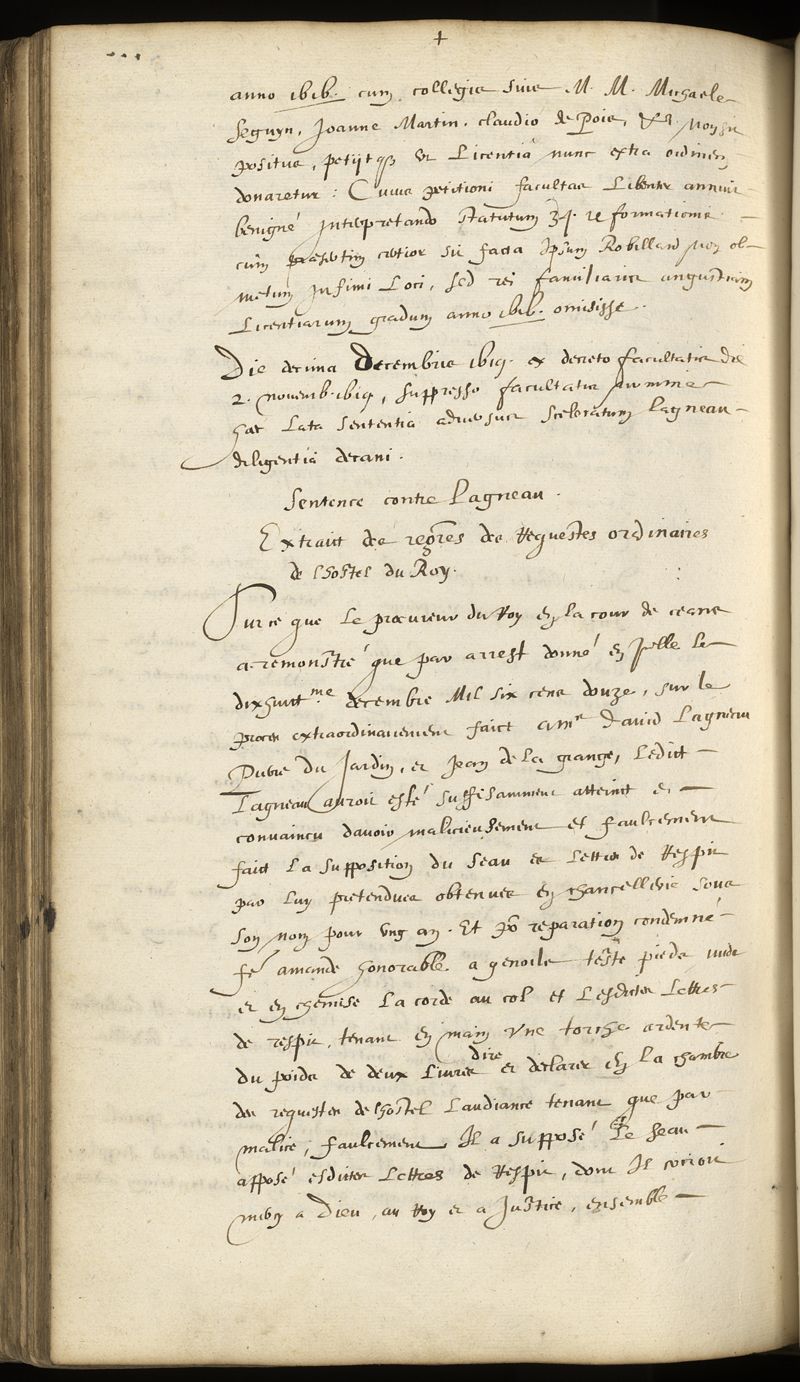 anno ibib. cum collegis suis M. M. Michaele
Seguyn, Joanne Martin. claudio de Pois,
positus, petijtq3 ut Licentiâ nunc extra ordinem
donaretur : Cuius petitioni facultas Libenter annuit
benignè interpretando statutum 34. reformationis
cùm praesertim certior sit facta ipsum Robillard non ob
metum infimi Loci, sed rei familiaris angustiam
Licentiarum gradum anno ibib. omisisse.
Die decima Decembris ibig. ex decreto facultatis die
2. novemb. ibig, suppresso facultatis nomine
haec Lata sententia aduersus sceleratum Lagneau
diligentiâ decani.
Sentence contre Lagneau.
Extraict des regres des Requestes ordinaires
de lhostel du Roy.
Sur ce que Le procureur du Roy en la cour de ceans
a remonstré que par arrest donné en Jcelle le
dixhuict.me decembre Mil six cens douze, sur le
proces extraordinairement faict a me David Lagneau
Pierre du Jardin, et Jean de la grange, Ledict
Lagneau auroit esté suffisamment atteinct et
convaincu davoir malicieusement et faulcement
faict La supposition du seau et Lettres de Respit
par Luy pretendues obtenues en chancellerie sous
son nom pour ung an. Et po reparation condemné
fe amande honorable a genoils teste pieds nuds
et en chemise La corde au col et Lesdites Lettres
de respit, tenant en main vne torche ardente
du poids de deux Livres dire et declarer en la chambre
des requestes de lhostel Laudiance tenant que par
malice, faulcement Il a supposé Le seau
apposé esdites Lettres de Respit, dont Il
mercy a Dieu, au Roy et a Justice, ensemble